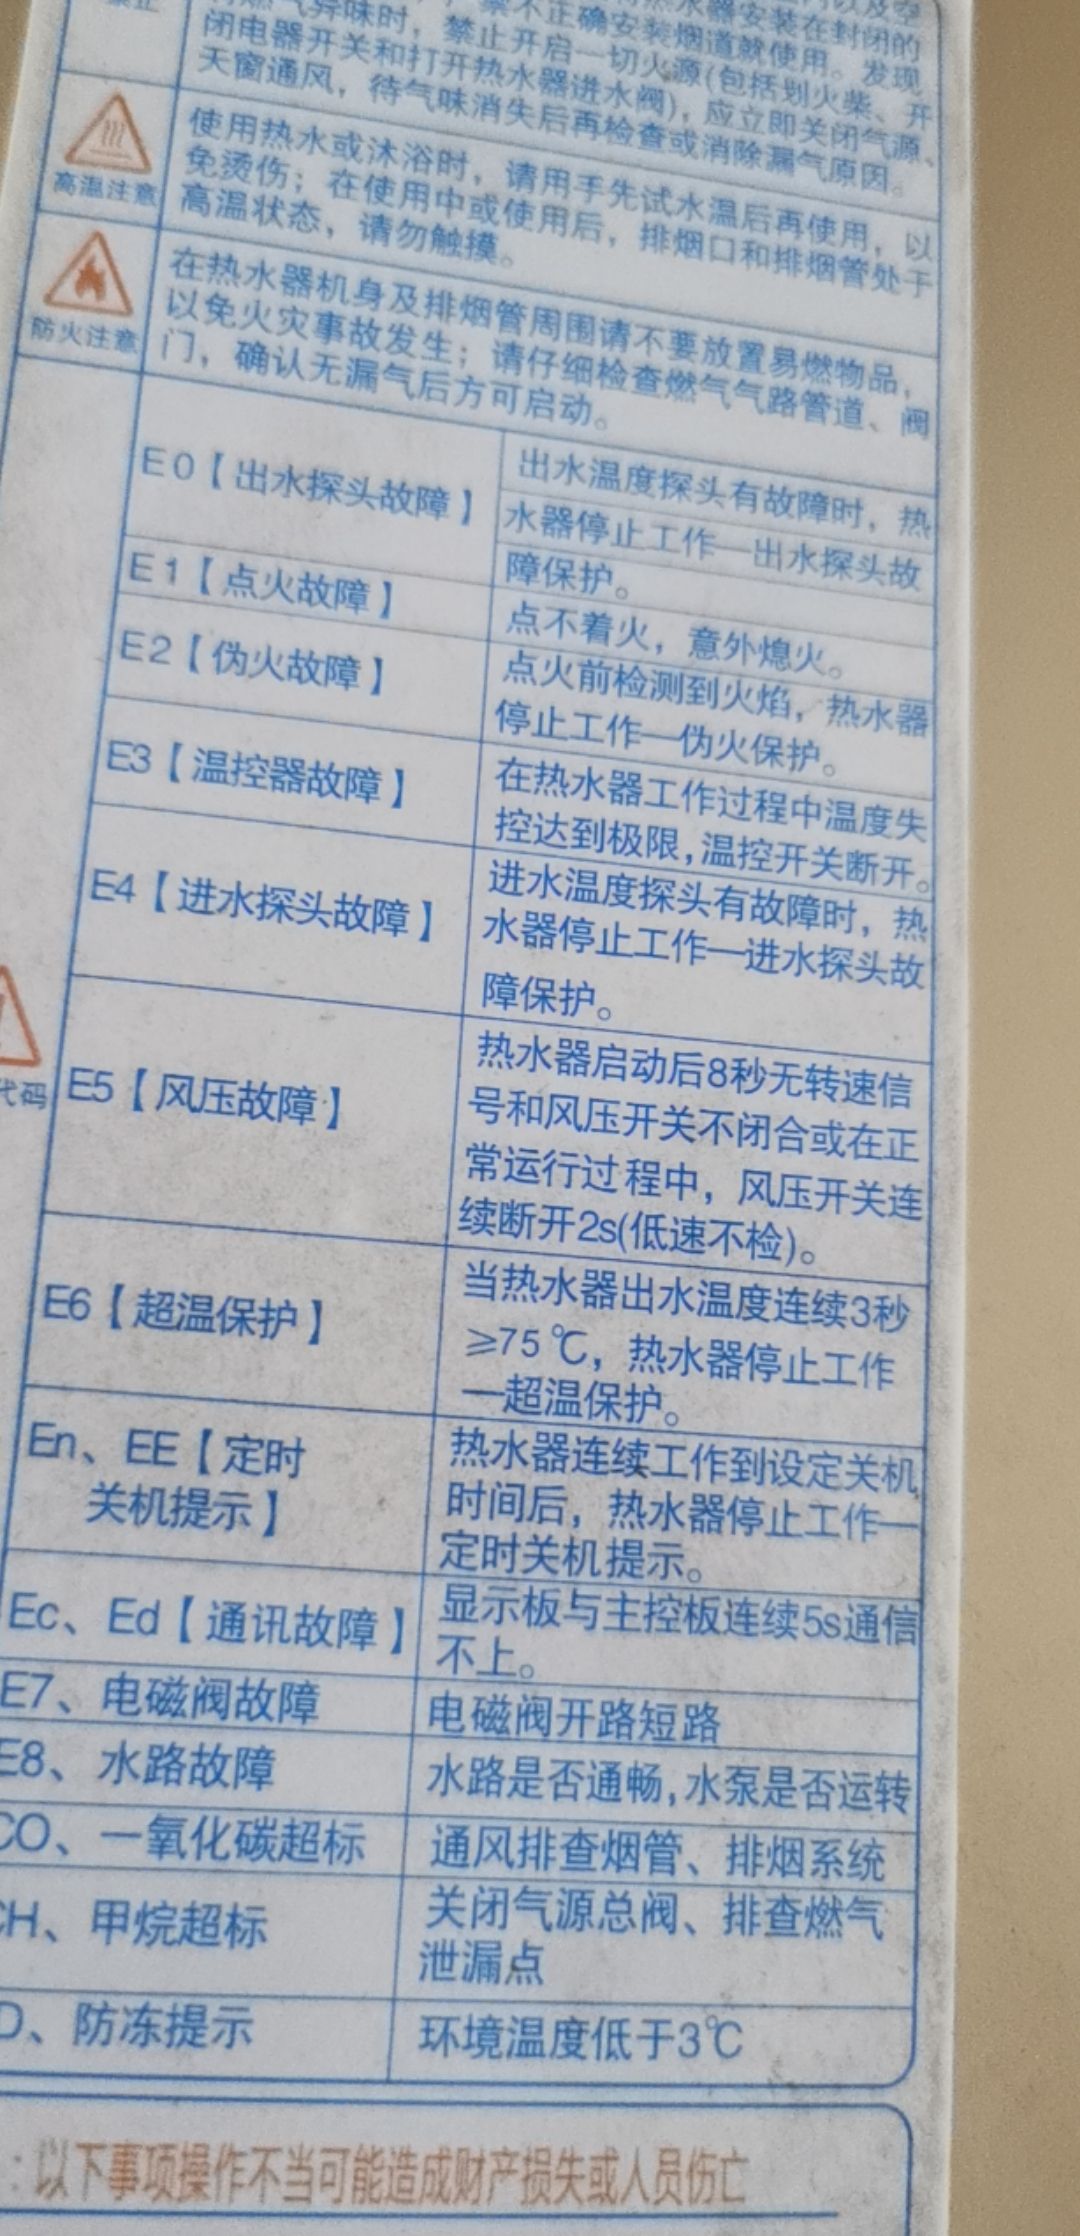 禁止
器安装在封闭的
禁不正确安装烟道就使用。发现
燃气异味时，禁止开启一切火源(包括划火柴、开
闭电器开关和打开热水器进水阀)，应立即关闭气源、
天窗通风，待气味消失后再检查或消除漏气原因。
高温注意
使用热水或沐浴时，请用手先试水温后再使用，以
免烫伤；在使用中或使用后，排烟口和排烟管处于
高温状态，请勿触摸。
防火注意
在热水器机身及排烟管周围请不要放置易燃物品，
以免火灾事故发生；请仔细检查燃气气路管道、阀
门，确认无漏气后方可启动。
代码
E0【出水探头故障】
出水温度探头有故障时，热
水器停止工作—出水探头故
障保护。
E1【点火故障】
点不着火，意外熄火。
E2【伪火故障】
点火前检测到火焰，热水器
停止工作—伪火保护。
E3【温控器故障】
在热水器工作过程中温度失
控达到极限,温控开关断开。
E4【进水探头故障】
进水温度探头有故障时，热
水器停止工作—进水探头故
障保护。
E5【风压故障】
热水器启动后8秒无转速信
号和风压开关不闭合或在正
常运行过程中，风压开关连
续断开2s(低速不检)。
E6【超温保护】
当热水器出水温度连续3秒
≥75℃，热水器停止工作
—超温保护。
En、EE【定时
关机提示】
热水器连续工作到设定关机
时间后，热水器停止工作—
定时关机提示。
Ec、Ed【通讯故障】
显示板与主控板连续5s通信
不上。
E7、电磁阀故障
电磁阀开路短路
E8、水路故障
水路是否通畅,水泵是否运转
CO、一氧化碳超标
通风排查烟管、排烟系统
CH、甲烷超标
关闭气源总阀、排查燃气
泄漏点
D、防冻提示
环境温度低于3℃
：以下事项操作不当可能造成财产损失或人员伤亡